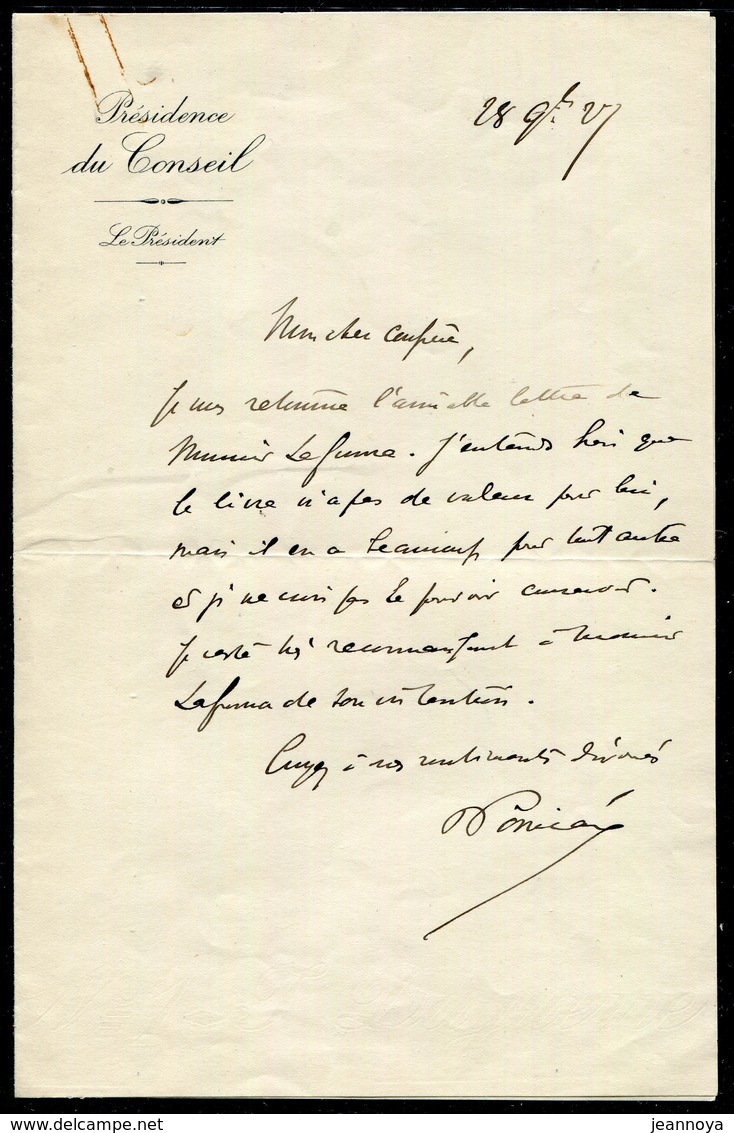 Présidence
du Conseil
Le Président
28 9bre 27
Mon cher confrère,
Je vous retourne l'aimable lettre de
Monsieur Lafuma. J'entends bien que
le livre n'a pas de valeur pour lui,
mais il en a beaucoup pour tout autre
et je ne crois pas le pouvoir conserver.
Je reste très reconnaissant à Monsieur
Lafuma de son intention.
Croyez à mes sentiments dévoués
RPoincaré
jeannoya